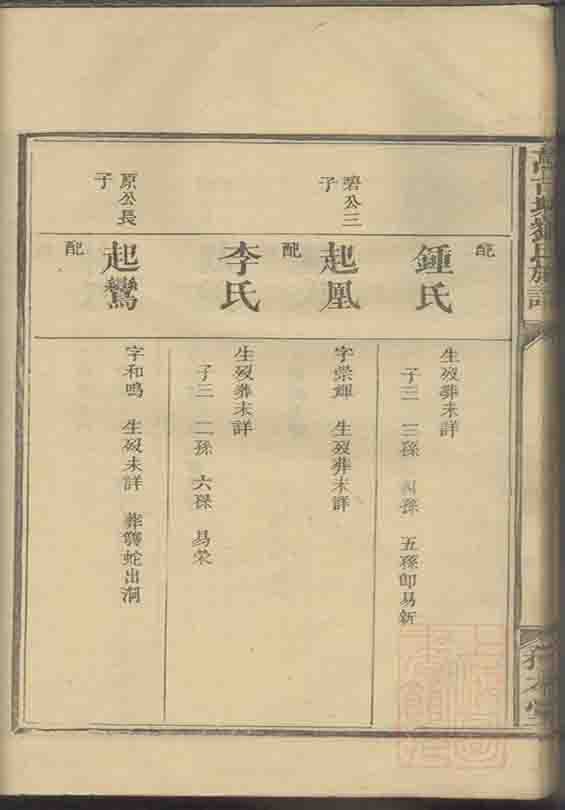 配
鍾氏
生歿葬未詳
子三 三孫 四孫 五孫即易新
碧公三
子
起鳳
字榮輝 生歿葬未詳
配
李氏
生歿葬未詳
子三 二孫 六孫 易棠
原公長
子
起鸞
字和鳴 生歿未詳 葬 蛇出洞
配